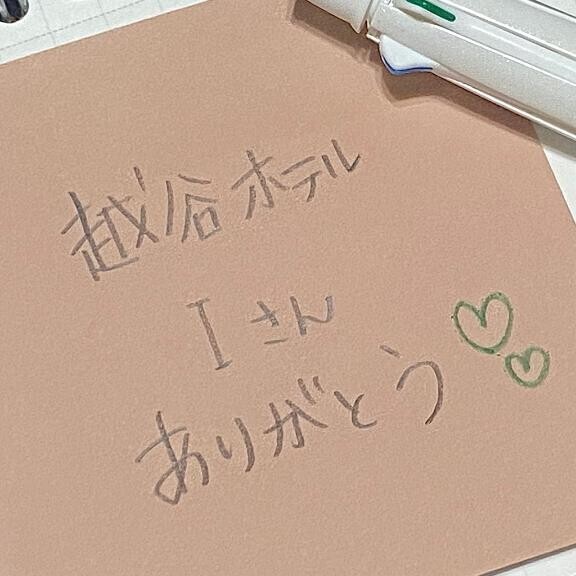 越谷ホテル
Iさん
ありがとう